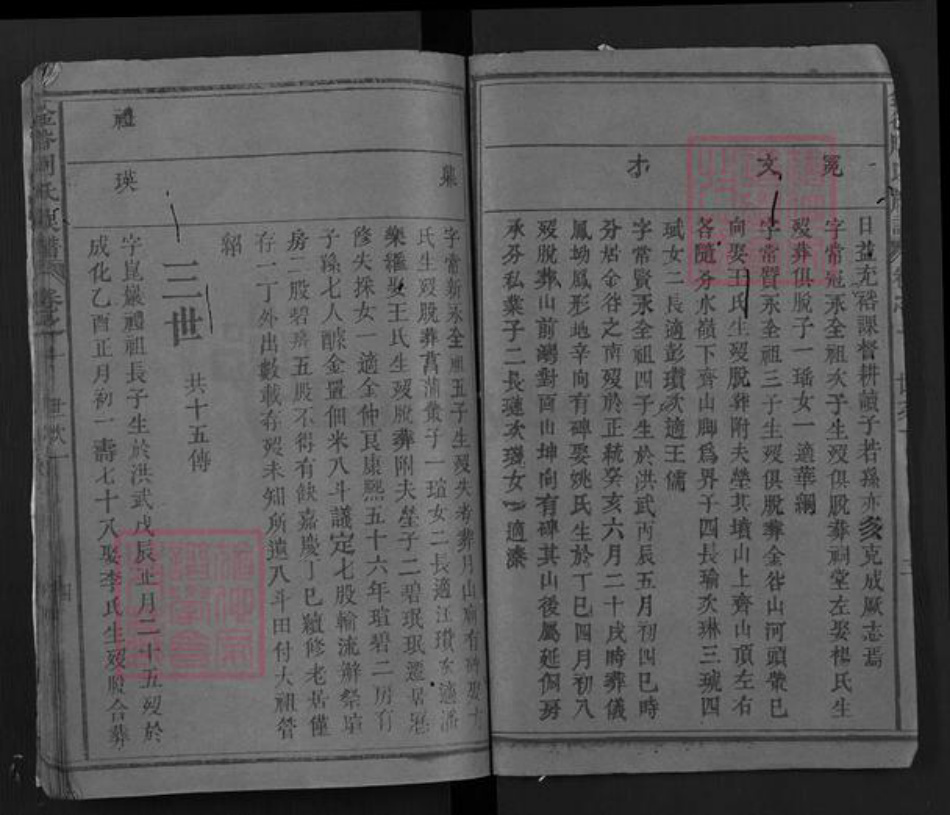 冕
文
才
日益充裕課督耕讀子若孫亦亥克成厥志焉
字常冠永全祖次子生歿俱脫葬祠堂左娶楊氏生
歿葬俱脫子一瑤女一適華綱
字常習永全祖三子生歿俱脫葬金谷山河頭藥巳
向娶王氏生歿脫葬附夫塋其墳山上齊山頂左右
各隨分水嶺下齊山脚爲界子四長瑜次琳三琬四
珷女二長適彭瓚次適王儒
字常賢永全祖四子生於洪武丙辰五月初四巳時
分居金谷之南歿於正統癸亥六月二十戌時葬儀
鳳坳鳳形地辛向有碑娶姚氏生於丁巳四月初八
歿脫葬山前灣對面山坤向有碑其山後屬延侗房
承分私業子二長璉次璎女一適漆
集
字常新永全祖五子生歿失考葬月山廟有碑娶
氏生歿脫葬菖蒲 子一瑄女二長適江瓚次適潘
樂繼娶王氏生歿脫葬附夫塋子二碧珉珉遷居
修失採女一適金仲艮康熙五十六年瑄碧二房有
子孫七人醵金置佃米八斗議定七股輪流辦祭瑄
房二股碧房五股不得有缺嘉慶丁巳續修老居僅
存一丁外出數載存歿未知所遺八斗田付大祖管
紹
三世 共十五傳
禮
瑛
字崑巖禮祖長子生於洪武戊辰正月二十五歿於
成化乙酉正月初一壽七十八娶李氏生歿脫合葬